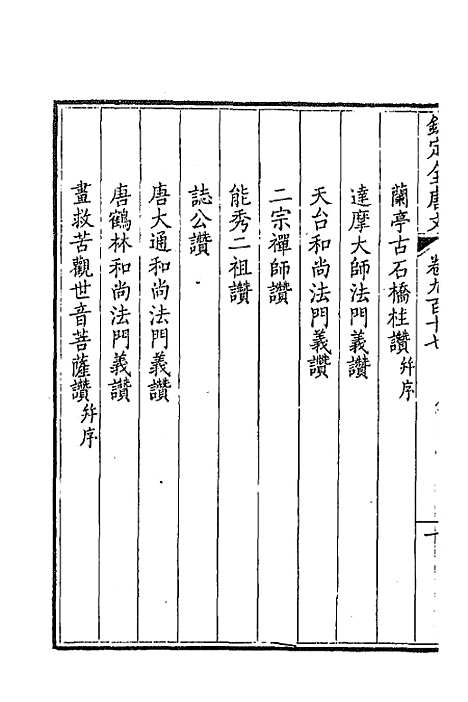 欽定全唐文 卷九百十七
蘭亭古石橋柱讚 并序
達摩大師法門義讚
天台和尚法門義讚
二宗禪師讚
能秀二祖讚
誌公讚
唐大通和尚法門義讚
唐鶴林和尚法門義讚
畫救苦觀世音菩薩讚 并序